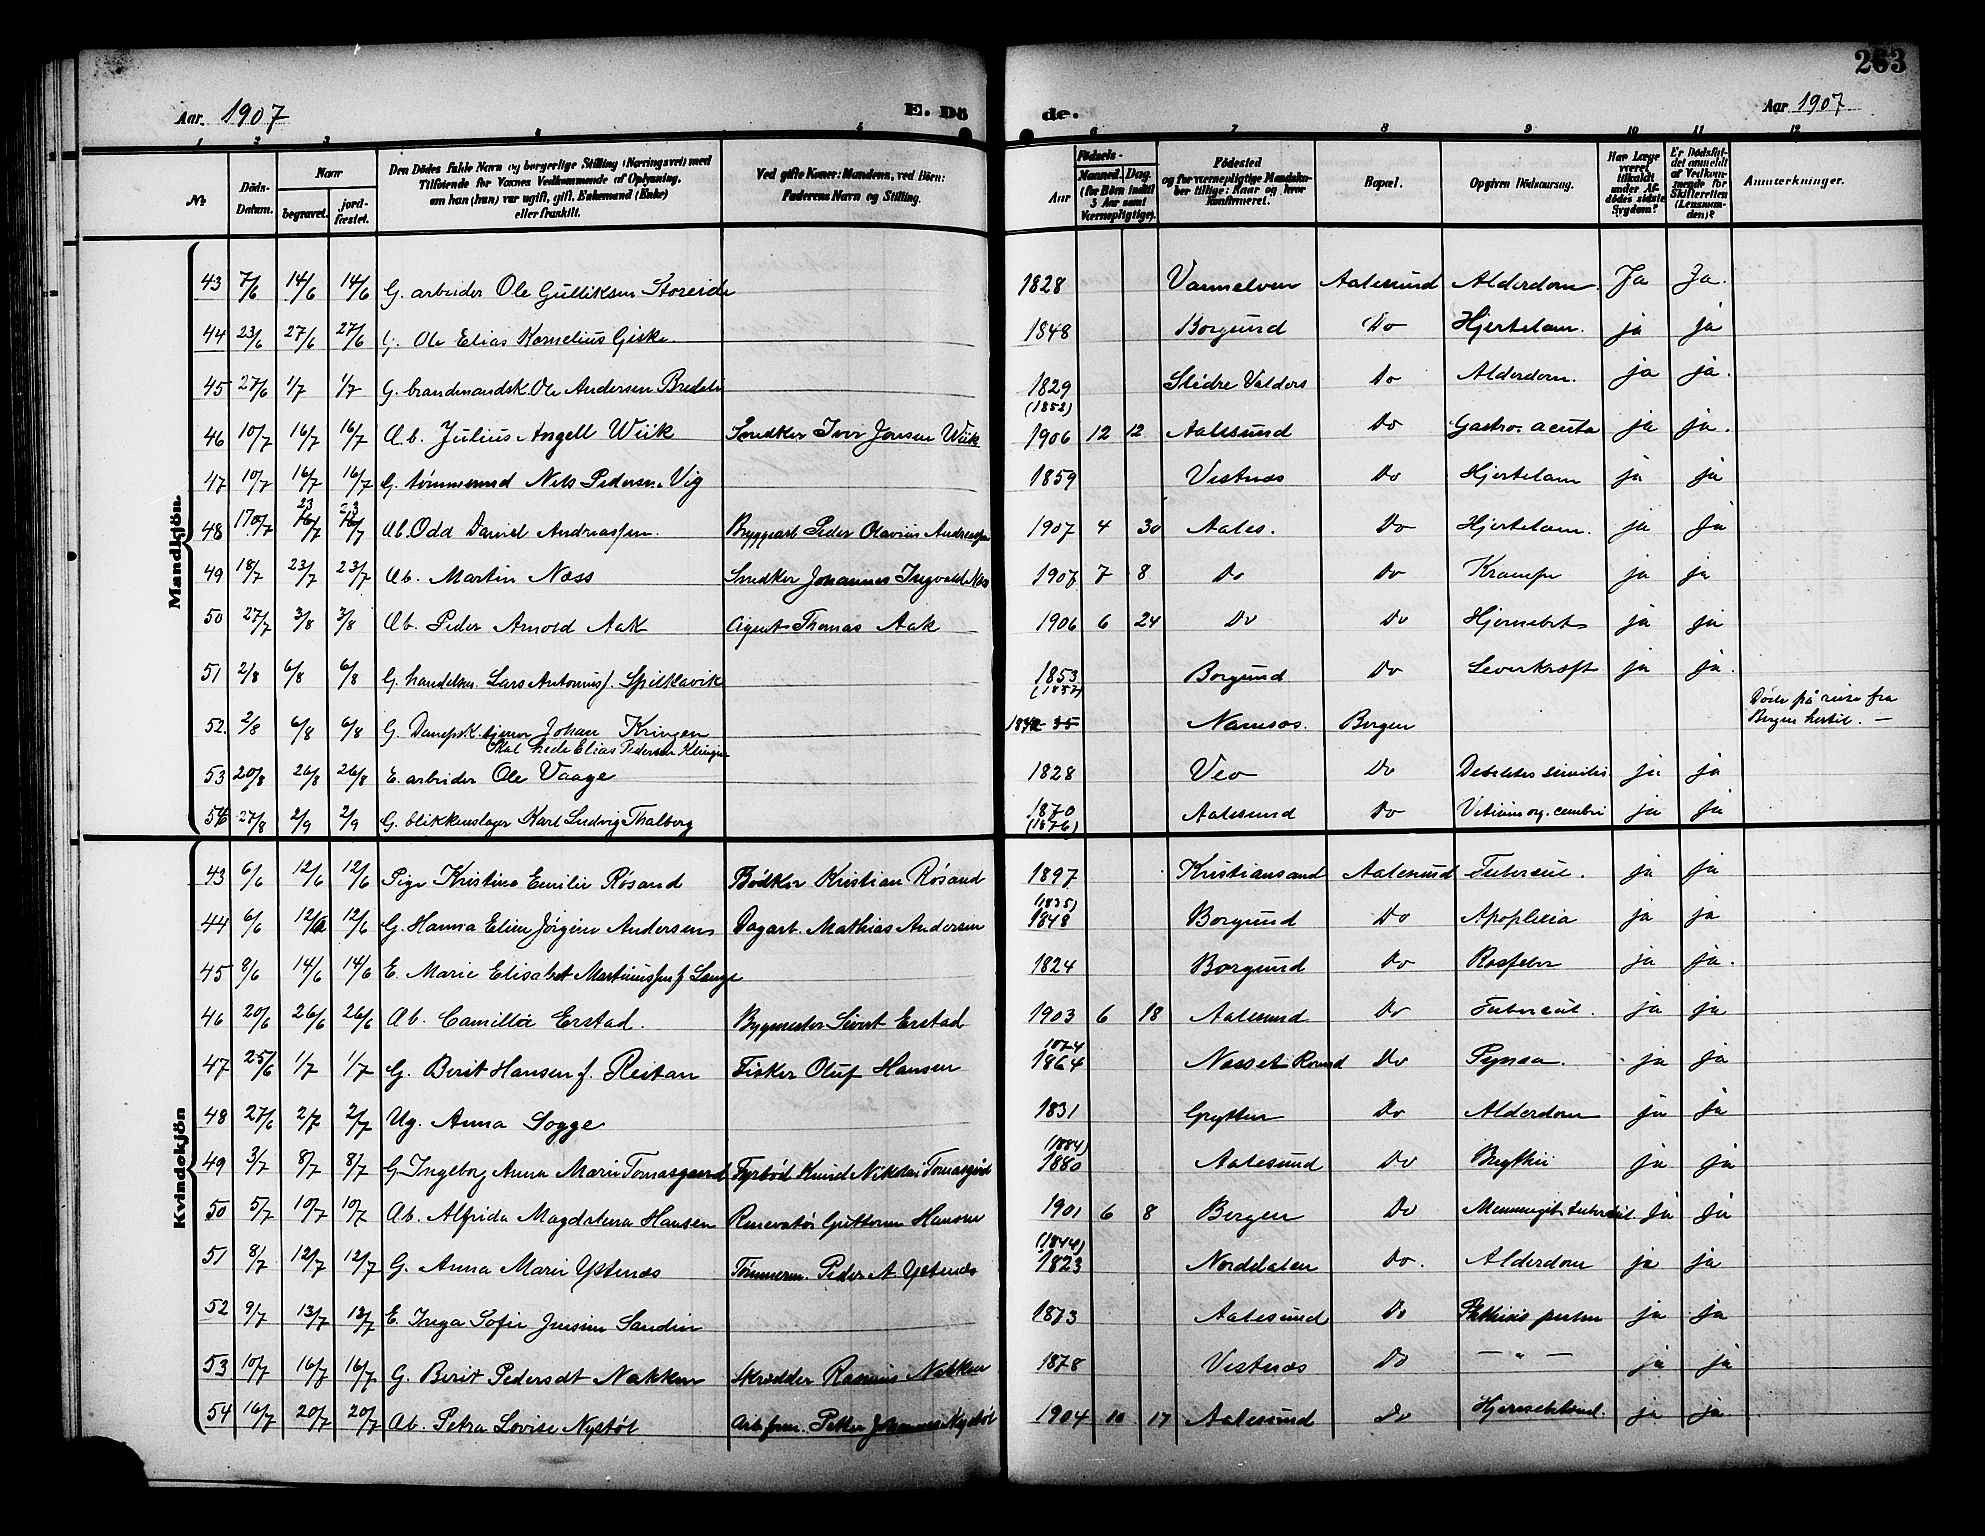 263
Aar. 1907
E. Dö
de.
Aar 1907
1 2 3 4 5 6 7 8 9 10 11 12
No
Döds-Datum.
Naar
begravet.
jord-fæstet.
Den Dödes fulde Navn og borgerlige Stilling (Næringsvei) med
Tilföiende for Voxnes Vedkommende af Oplysning,
om han (hun) var ugift, gift, Enkemand (Enke)
eller fraskilt.
Ved gifte Koner: Mandens, ved Börn:
Faderens Navn og Stilling.
Födsels-
Aar
Maaned. Dag.
(for Börn indtil
5 Aar samt
Værnepligtige).
Födested
og for værnepligtige Mandskaber tillige: Naar og hvor
konfirmeret.
Bopæl.
Opgiven Dödsaarsag.
Har Læge
været
tilkaldt
under Afdödes sidste
Sygdom?
Er Dödsfaldet anmeldt
af Vedkommende for
Skifteretten
(Lensmanden)?
Anmærkninger.
Mandkjön.
43 7/6 14/6 14/6 G. arbeider Ole Gulliksen Storeide 1828 Vannelven Aalesund Alderdom. Ja Ja.
44 23/6 27/6 27/6 G. Ole Elias Kornelius Giske. 1848 Borgund Do Hjertelam. ja ja
45 27/6 1/7 1/7 G. brandmandsk. Ole Andersen Bredeli 1829 Slidre Valders Do Alderdom. ja ja.
(1852)
46 10/7 16/7 16/7 Ab. Julius Angell Wiik Snedker Iver Jonsen Wiik 1906 12 12 Aalesund Do Gastro. acuta ja ja.
47 10/7 16/7 16/7 G. tømmermd Nils Pedersen Vig 1859 Vestnæs Do Hjertelam ja ja
23 23
48 17/7 16/7 16/7 Ab. Odd David Andreassen. Bryggearb Peder Olavius Andreassen 1907 4 30 Aales. Do Hjertelam. ja ja
49 18/7 23/7 23/7 Ab. Martin Næss Snedker Johannes Ingvald Næs 1907 7 8 Do Do Krampe ja ja
50 27/7 3/8 3/8 Ab. Peder Arnold Aak Agent Thomas Aak 1906 6 24 Do Do Hjernebet ja ja
51 2/8 6/8 6/8 G. handelsm. Lars Antonius f. Spilkavik 1853 Borgund Do Leverkræft ja ja.
(1857)
52. 2/8 6/8 6/8 G. Dampsk. tjener Johan Kringen Namsos. Bergen Døde på reise fra
Bergen hertil. —
Skal hede Elias Pedersen Klingen
53 20/8 26/8 26/8 E. arbeider Ole Vaage 1828 Veo Do Debilitas senilis. ja ja
54 27/8 2/9 2/9 G. blikkenslager Karl Ludvig Thalberg 1870 Aalesund Do Vitium org. ja ja
(1876)
Kvindekjön
43 6/6 12/6 12/6 Pige Kristine Emilie Røsand Bødker Kristian Røsand 1897 Kristiansand Aalesund Tubercul. ja ja
(1835)
44 6/6 12/6 12/6 G. Hanna Eline Jørgine Andersen Dagarb. Mathias Andersen 1848 Borgund Do Apoplexia ja ja
45 8/6 14/6 14/6 E. Marie Elisabet Martinussen f. Lange 1824 Borgund Do Rosfeber ja ja.
46 20/6 26/6 26/6 Ab. Camilla Erstad. Bygmester Sivert Erstad 1903 6 18 Aalesund Do Tubercul. ja ja
1874
47 25/6 1/7 1/7 G. Berit Hansen f. Reitan Fisker Oluf Hansen 1864 Nesset Romsd Do ja ja
48 27/6 2/7 2/7 Ug. Anna Sogge 1831 Grytten Do Alderdom ja ja
(1884)
49 3/7 8/7 8/7 G Ingeborg Anna Marie Tomasgaard Fyrbød Knud Nikolai Tomasgård 1880 Aalesund Do ja ja
50 5/7 10/7 10/7 Ab. Alfrida Magdalena Hansen Guttorm Hansen 1901 6 8 Bergen Do Menningit tubercul. ja ja
(1844)
51 8/7 12/7 12/7 G. Anna Marie Ystenæs Tømmerm. Peder A Ystenæs 1823 Norddalen Do. Alderdom ja ja
52 9/7 13/7 13/7 E. Inga Sofie Jensine Sandin 1873 Aalesund Do Phthisis pulm ja ja
53 10/7 16/7 16/7 G. Berit Pedersdt Nakken Skrædder Rasmus Nakken 1878 Vestnæs Do — „ — ja ja
54 16/7 20/7 20/7 Ab. Petra Lovise Nystøl Arb. form. Petter Johannes Nystøl 1904 10 17 Aalesund Do ja ja.